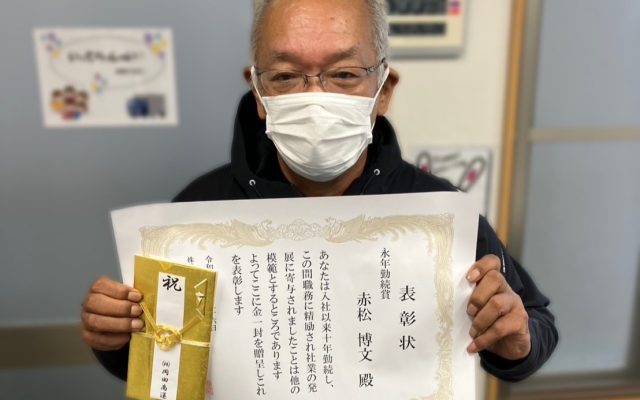 表彰状
永年勤続賞
赤松 博文 殿
あなたは入社以来十年勤続し、
この間職務に精励され社業の発
展に寄与されましたことは他の
模範とするところであります
よってここに金一封を贈呈しこれ
を表彰します
令和
株
祝
㈲岡田商運